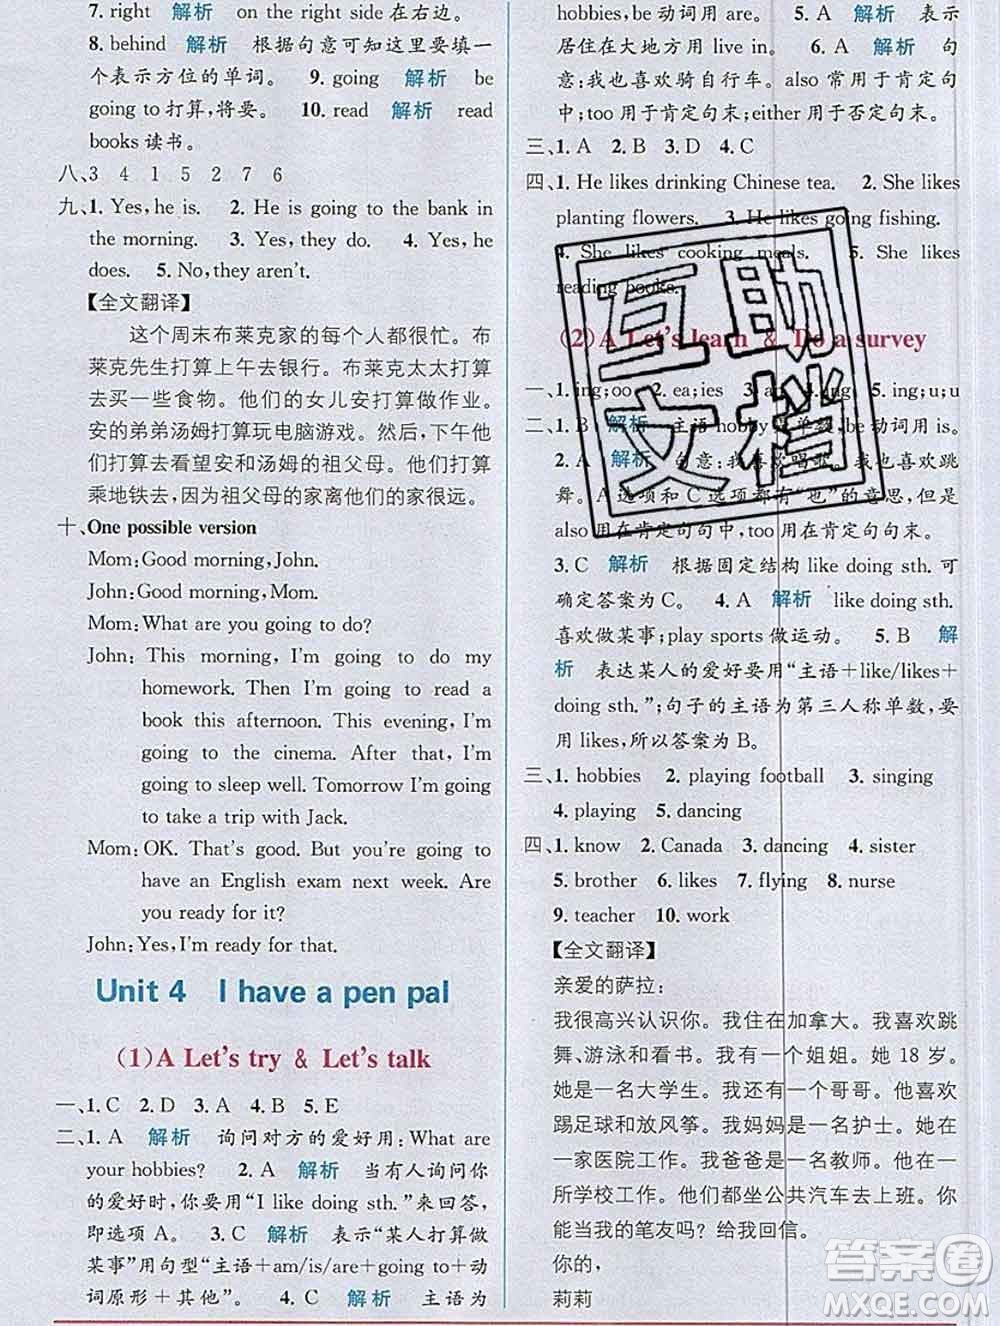 7. right 解析 on the right side 在右边。
8. behind 解析 根据句意可知这里要填一
个表示方位的单词。 9. going 解析 be
going to 打算,将要。 10. read 解析 read
books 读书。
八、3 4 1 5 2 7 6
九、1. Yes, he is. 2. He is going to the bank in
the morning. 3. Yes, they do. 4. Yes, he
does. 5. No, they aren't.
【全文翻译】
这个周末布莱克家的每个人都很忙。布
莱克先生打算上午去银行。布莱克太太打算
去买一些食物。他们的女儿安打算做作业。
安的弟弟汤姆打算玩电脑游戏。然后,下午他
们打算去看望安和汤姆的祖父母。他们打算
乘地铁去,因为祖父母的家离他们的家很远。
十、One possible version
Mom: Good morning, John.
John: Good morning, Mom.
Mom: What are you going to do?
John: This morning, I'm going to do my
homework. Then I'm going to read a
book this afternoon. This evening, I'm
going to the cinema. After that, I'm
going to sleep well. Tomorrow I'm going
to take a trip with Jack.
Mom: OK. That's good. But you're going to
have an English exam next week. Are
you ready for it?
John: Yes, I'm ready for that.
Unit 4 I have a pen pal
(1) A Let's try & Let's talk
一、1. C 2. D 3. A 4. B 5. E
二、1. A 解析 询问对方的爱好用:What are
your hobbies? 2. A 解析 当有人询问你
的爱好时,你要用“I like doing sth.”来回答,
即选项 A。 3. C 解析 表示“某人打算做
某事”用句型“主语+am/is/are+going to+动
词原形+其他”。 4. C 解析 主语为
hobbies, be 动词用 are. 5. A 解析 表示
居住在大地方用 live in。 6. A 解析 句
意:我也喜欢骑自行车。also 常用于肯定句
中;too 用于肯定句末;either 用于否定句末。
三、1. A 2. B 3. D 4. C
四、1. He likes drinking Chinese tea. 2. She likes
planting flowers. 3. He likes going fishing.
4. She likes cooking meals. 5. She likes
reading books.
(2) A Let's learn & Do a survey
一、1. ing; oo 2. ea; ies 3. a 4. ing 5. ing; u; u
二、1. B 解析 主语 hobby 是单数, be 动词用 is。
2. A 解析 句意:我喜欢唱歌。我也喜欢跳
舞。A 选项和 C 选项都有“也”的意思,但是
also 用在肯定句句中,too 用在肯定句句末。
3. C 解析 根据固定结构 like doing sth. 可
确定答案为 C。 4. A 解析 like doing sth.
喜欢做某事;play sports 做运动。 5. B 解
析 表达某人的爱好要用“主语+like/likes+
doing sth.”;句子的主语为第三人称单数,要
用 likes,所以答案为 B。
三、1. hobbies 2. playing football 3. singing
4. playing 5. dancing
四、1. know 2. Canada 3. dancing 4. sister
5. brother 6. likes 7. flying 8. nurse
9. teacher 10. work
【全文翻译】
亲爱的萨拉:
我很高兴认识你。我住在加拿大。我喜欢跳
舞、游泳和看书。我有一个姐姐。她 18 岁。
她是一名大学生。我还有一个哥哥。他喜欢
踢足球和放风筝。我妈妈是一名护士。她在
一家医院工作。我爸爸是一名教师。他在一
所学校工作。他们都坐公共汽车去上班。你
能当我的笔友吗?给我回信。
你的,
莉莉
互助
文档
答案圈
MXQE.COM